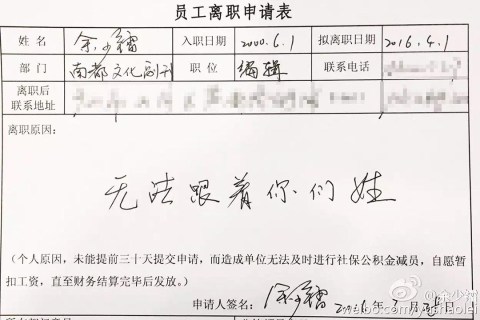 员工离职申请表
姓 名 余少镭 入职日期 2000.6.1 拟离职日期 2016.4.1
部 门 南都文化副刊 职 位 编辑 联系电话
离职后
联系地址
离职原因：
无法跟着你们姓
（个人原因，未能提前三十天提交申请，而造成单位无法及时进行社保公积金减员，自愿暂
扣工资，直至财务结算完毕后发放。）
申请人签名：余少镭 2016年3月28日
@余少镭
weibo.com/yushaolei